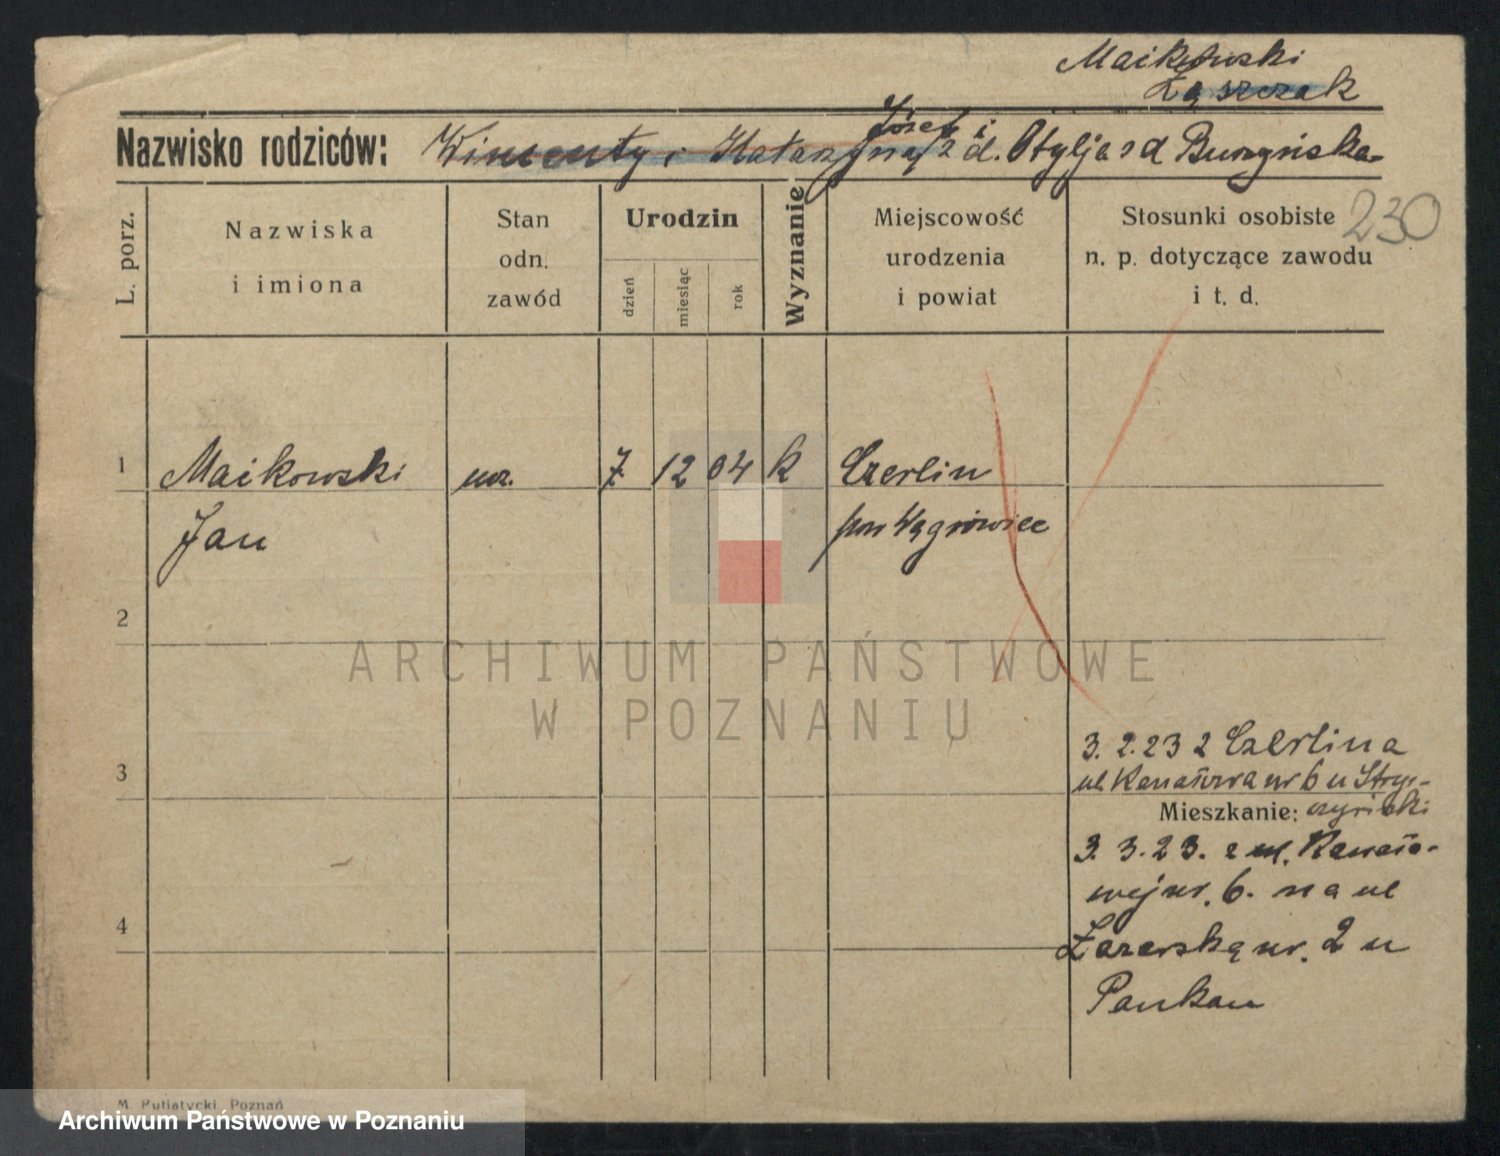 Maikowski
Łąszczak
Józef i
Nazwisko rodziców: Wincenty i Katarzyna z d. Otylja z d Burzyńska
230
L. porz.
Nazwiska
i imiona
Stan
odn.
zawód
Urodzin
dzień
miesiąc
rok
Wyznanie
Miejscowość
urodzenia
i powiat
Stosunki osobiste
n. p. dotyczące zawodu
i t. d.
1 Maikowski ucz. 7 12 04 k Czerlin
Jan pow Wągrowiec
2
ARCHIWUM PAŃSTWOWE
W POZNANIU
3. 2. 23 z Czerlina
3
ul Kanałowa nr 6 u
Mieszkanie:
3. 3. 23. z ul. Kanało-
wej nr. 6. na ul
4
Łazarską nr. 2 u
Pankau
M. Putiatycki, Poznań
Archiwum Państwowe w Poznaniu